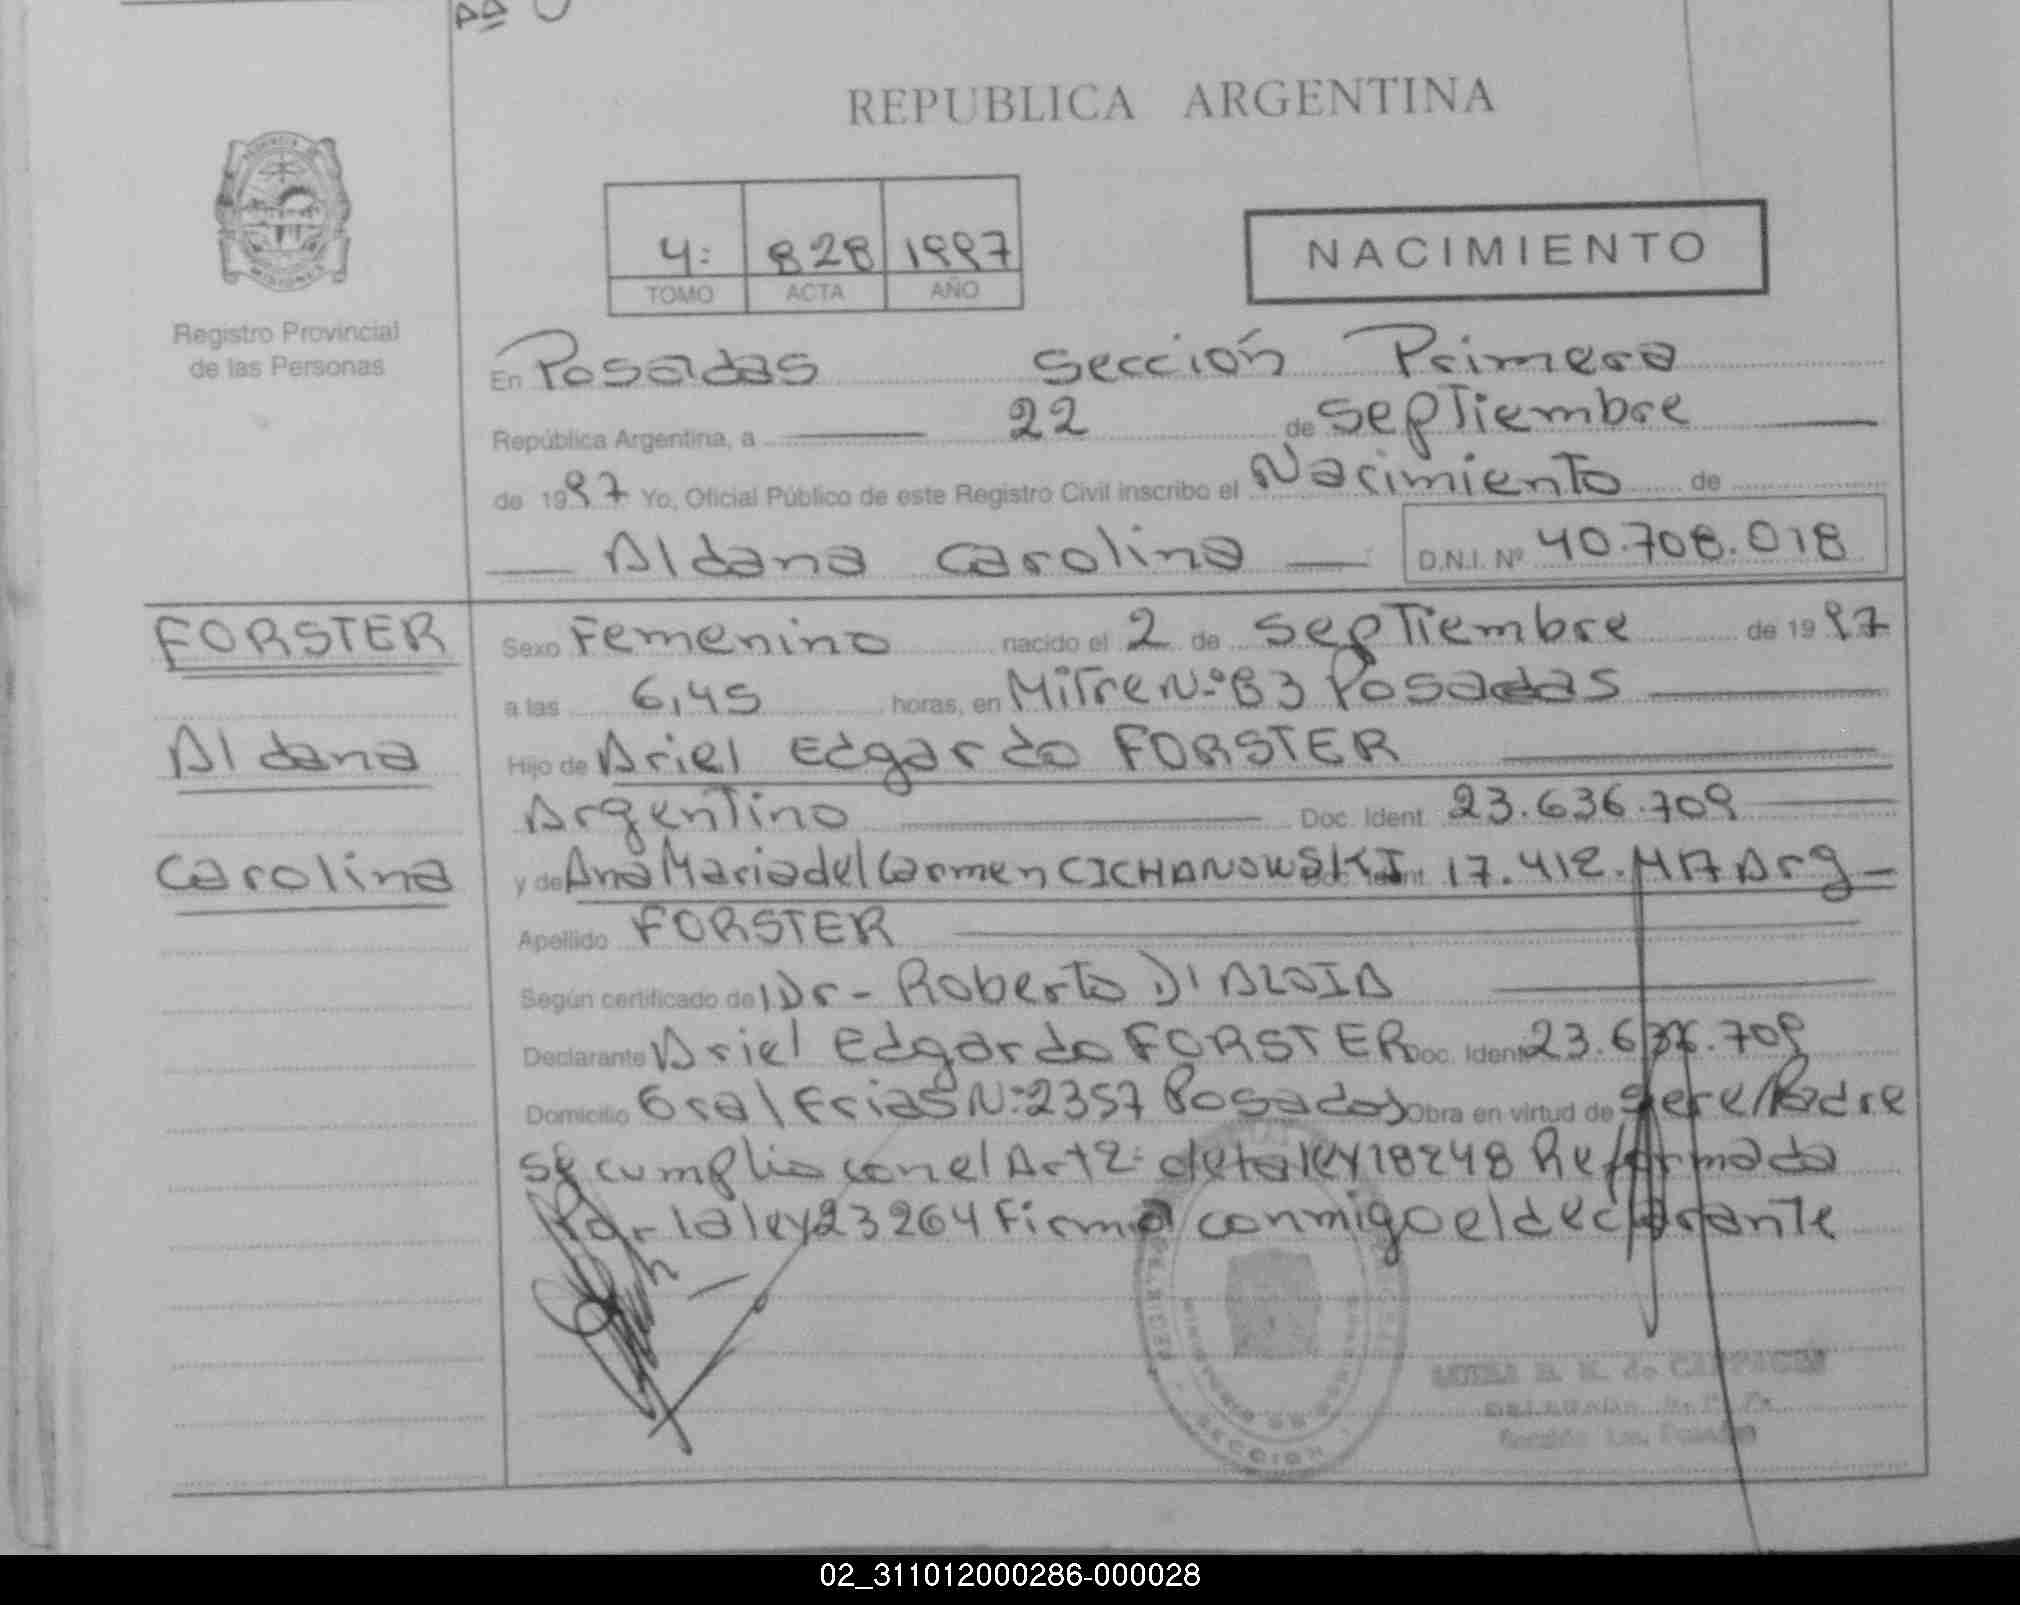 REPUBLICA ARGENTINA
4: 828 1997
TOMO ACTA AÑO
NACIMIENTO
Registro Provincial
de las Personas
En Posadas Sección Primera
República Argentina, a 22 de Septiembre
de 1997 Yo, Oficial Público de este Registro Civil inscribo el Nacimiento de
Aldana Carolina D.N.I. Nº 40.708.018
FORSTER
Aldana
Carolina
Sexo Femenino nacido el 2 de Septiembre de 1997
a las 6,45 horas, en Mitre N-º 83 Posadas
Hijo de Ariel Edgardo FORSTER
Argentino Doc. Ident. 23.636.709
y de Ana Maria del Carmen CICHANOWSKI 17.412. Arg
Apellido FORSTER
Según certificado de Dr- Roberto D'ALOIA
Declarante Ariel Edgardo FORSTER Doc. Ident 23.636.709
Domicilio Gral Frias N:2357 Posadas Obra en virtud de Padre
se cumplio con el Art 2: de la ley 18248 Reformada
Por la ley 23264 Firma conmigo el declarante
SECCION
02_311012000286-000028